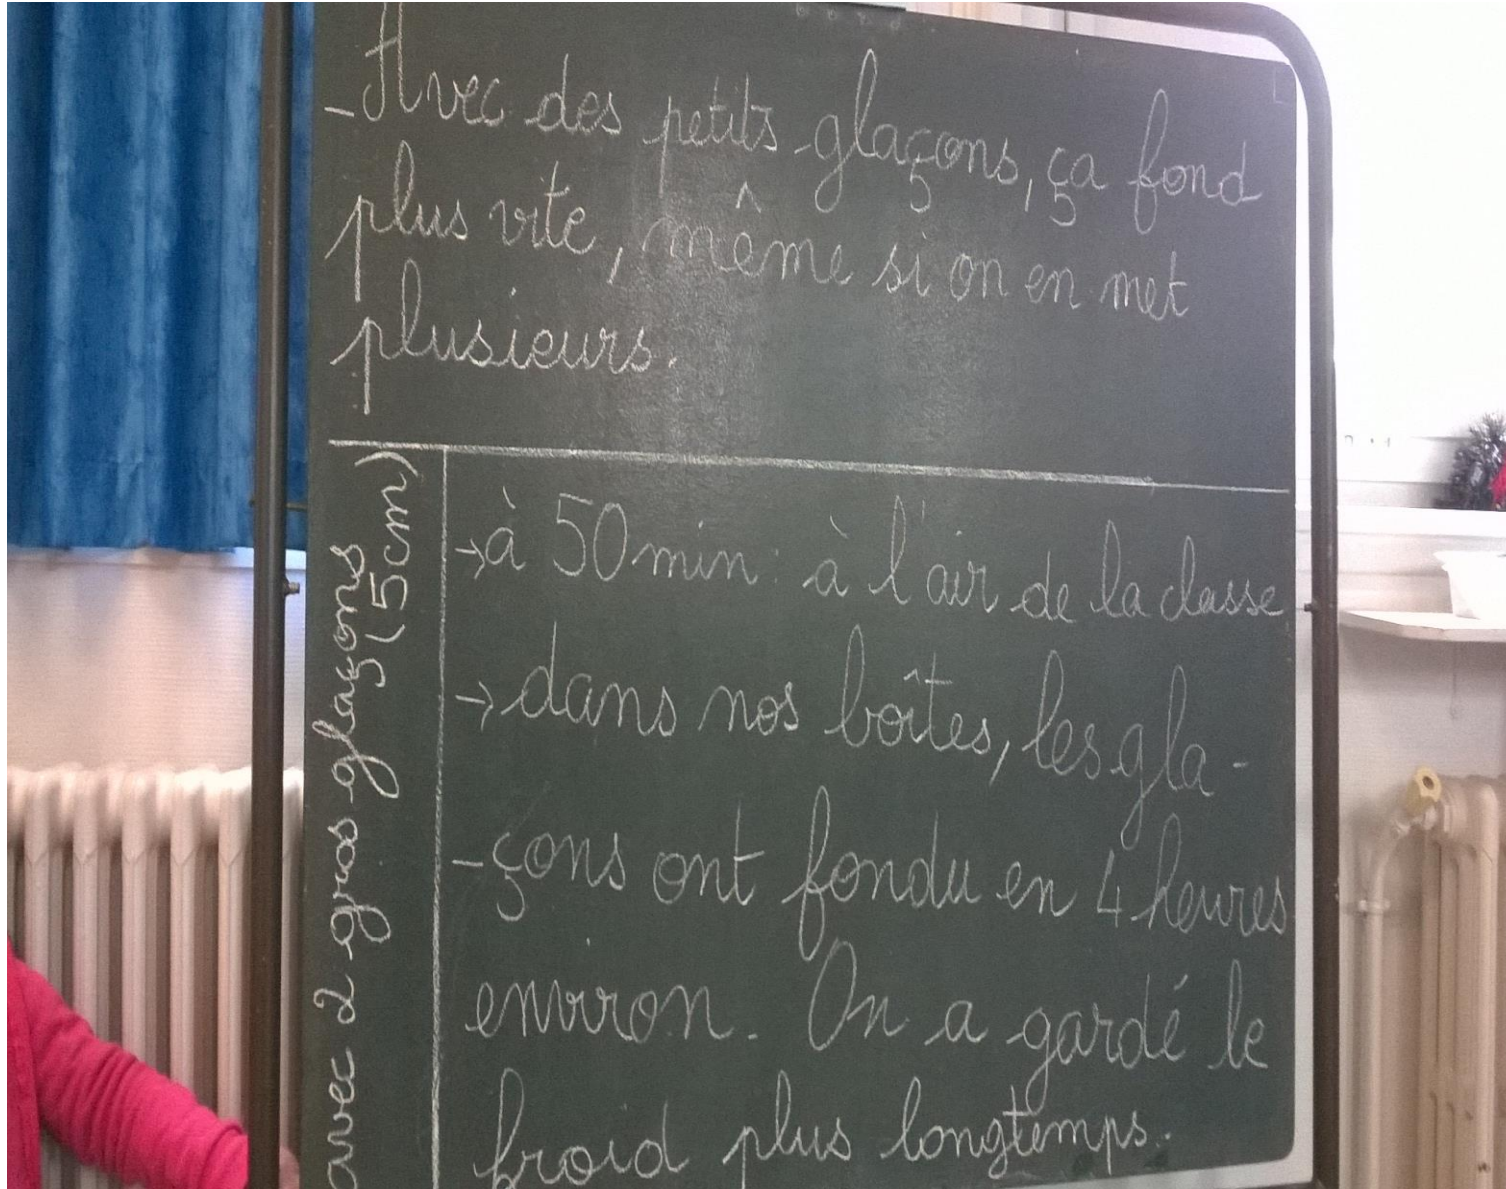 - Avec des petits glaçons, ça fond
plus vite, même si on en met
plusieurs.
avec 2 gros glaçons
(5cm)
→ à 50 min : à l'air de la classe
→ dans nos boîtes, les gla-
-çons ont fondu en 4 heures
environ. On a gardé le
froid plus longtemps.